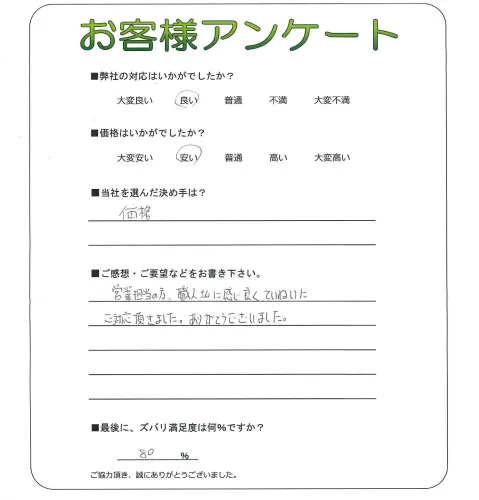 お客様アンケート
■弊社の対応はいかがでしたか？
大変良い 良い 普通 不満 大変不満
■価格はいかがでしたか？
大変安い 安い 普通 高い 大変高い
■当社を選んだ決め手は？
価格
■ご感想・ご要望などをお書き下さい。
営業担当の方、職人さん共に感じ良く ていねいに
ご対応頂きました。ありがとうございました。
■最後に、ズバリ満足度は何%ですか？
80 %
ご協力頂き、誠にありがとうございました。